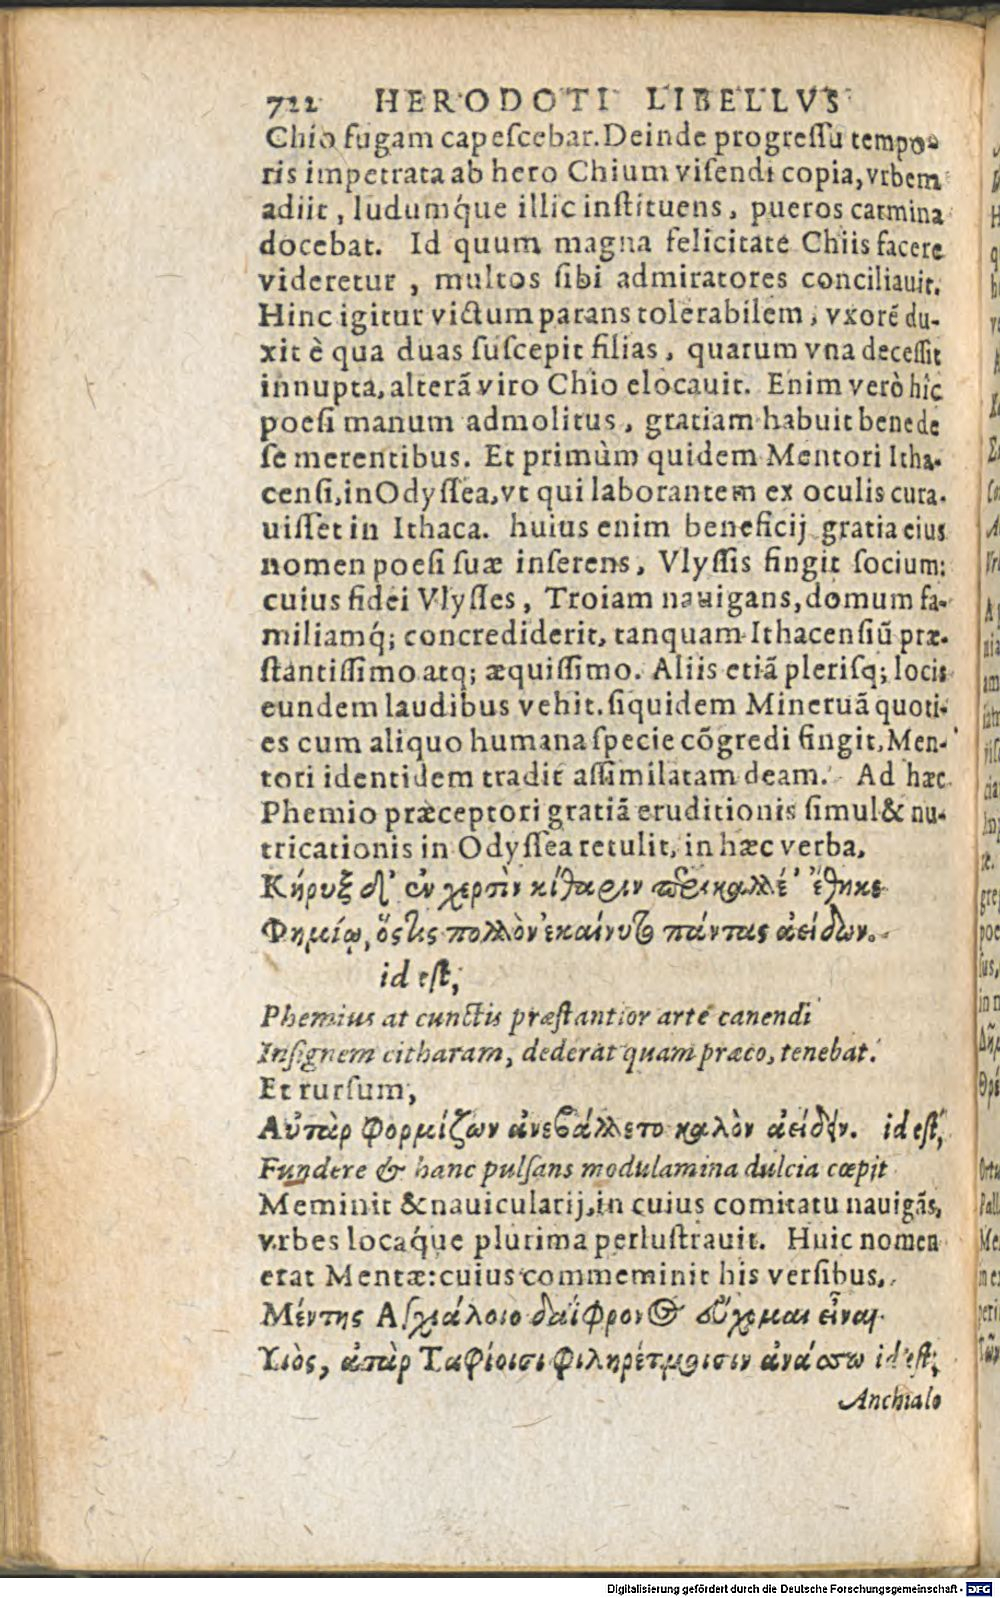 722 HERODOTI LIBELLVS
Chio fugam capescebar. Deinde progressu tempo-
ris impetrata ab hero Chium visendi copia, vrbem
adiit, ludumq́ue illic instituens, pueros carmina
docebat. Id quum magna felicitate Chiis facere
videretur, multos sibi admiratores conciliauit.
Hinc igitur victum parans tolerabilem, vxorẽ du-
xit è qua duas suscepit filias, quarum vna decessit
innupta, alterã viro Chio elocauit. Enim verò hîc
poesi manum admolitus, gratiam habuit bene de
se merentibus. Et primùm quidem Mentori Itha-
censi, in Odyssea, vt qui laborantem ex oculis cura-
uisset in Ithaca. huius enim beneficij gratia eius
nomen poesi suæ inserens, Vlyssis fingit socium:
cuius fidei Vlysses, Troiam nauigans, domum fa-
miliamq́; concrediderit, tanquam Ithacensiũ præ-
stantissimo atq; æquissimo. Aliis etiã plerisq; locis
eundem laudibus vehit. siquidem Mineruã quoti-
es cum aliquo humana specie cõgredi fingit, Men-
tori identidem tradit assimilatam deam. Ad hæc
Phemio præceptori gratiã eruditionis simul & nu-
tricationis in Odyssea retulit, in hæc verba,
Κήρυξ δ' ἐν χερσὶν κίθαριν περικαλλέ' ἔθηκε
Φημίῳ, ὅστις πολλὸν ἐκαίνυτο πάντας ἀείδων.
id est,
Phemius at cunctis præstantior arte canendi
Insignem citharam, dederat quam præco, tenebat.
Et rursum,
Αὐτὰρ φορμίζων ἀνεβάλλετο καλὸν ἀείδειν. id est,
Fundere & hanc pulsans modulamina dulcia cœpit
Meminit & nauicularij, in cuius comitatu nauigãs,
vrbes locaq́ue plurima perlustrauit. Huic nomen
erat Mentæ: cuius commeminit his versibus,
Μέντης Ἀγχιάλοιο δαΐφρονος εὔχομαι εἶναι
Υιὸς, ἀτὰρ Ταφίοισι φιληρέτμοισιν ἀνάσσω id est,
Anchialo
Digitalisierung gefördert durch die Deutsche Forschungsgemeinschaft - DFG